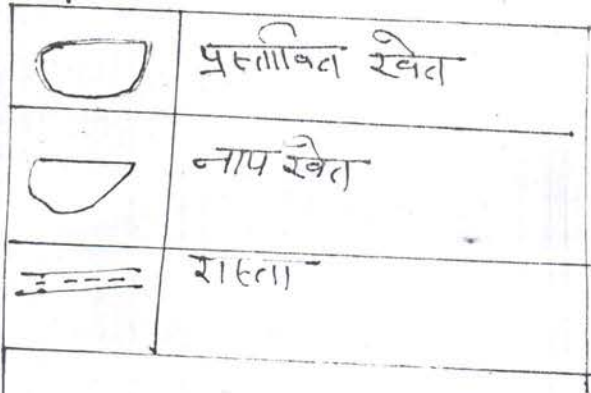 प्रस्तावित खेत
नाप खेत
रास्ता